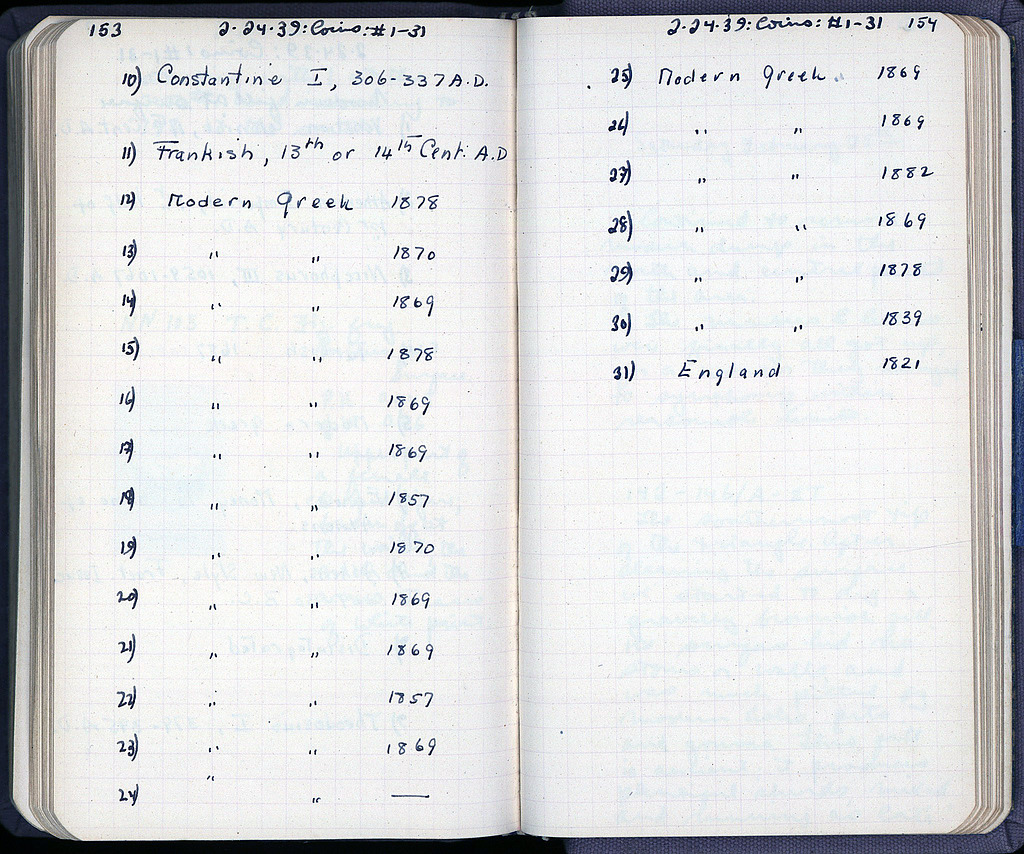 153 2-24-39: Coins: #1-31
10) Constantine I, 306-337 A.D.
11) Frankish, 13th or 14th Cent. A.D
12) Modern Greek 1878
13) " " 1870
14) " " 1869
15) " " 1878
16) " " 1869
17) " " 1869
18) " " 1857
19) " " 1870
20) " " 1869
21) " " 1869
22) " " 1857
23) " " 1869
24) " " —
2-24-39: Coins: #1-31 154
25) Modern Greek " 1869
26) " " 1869
27) " " 1882
28) " " 1869
29) " " 1878
30) " " 1839
31) England 1821